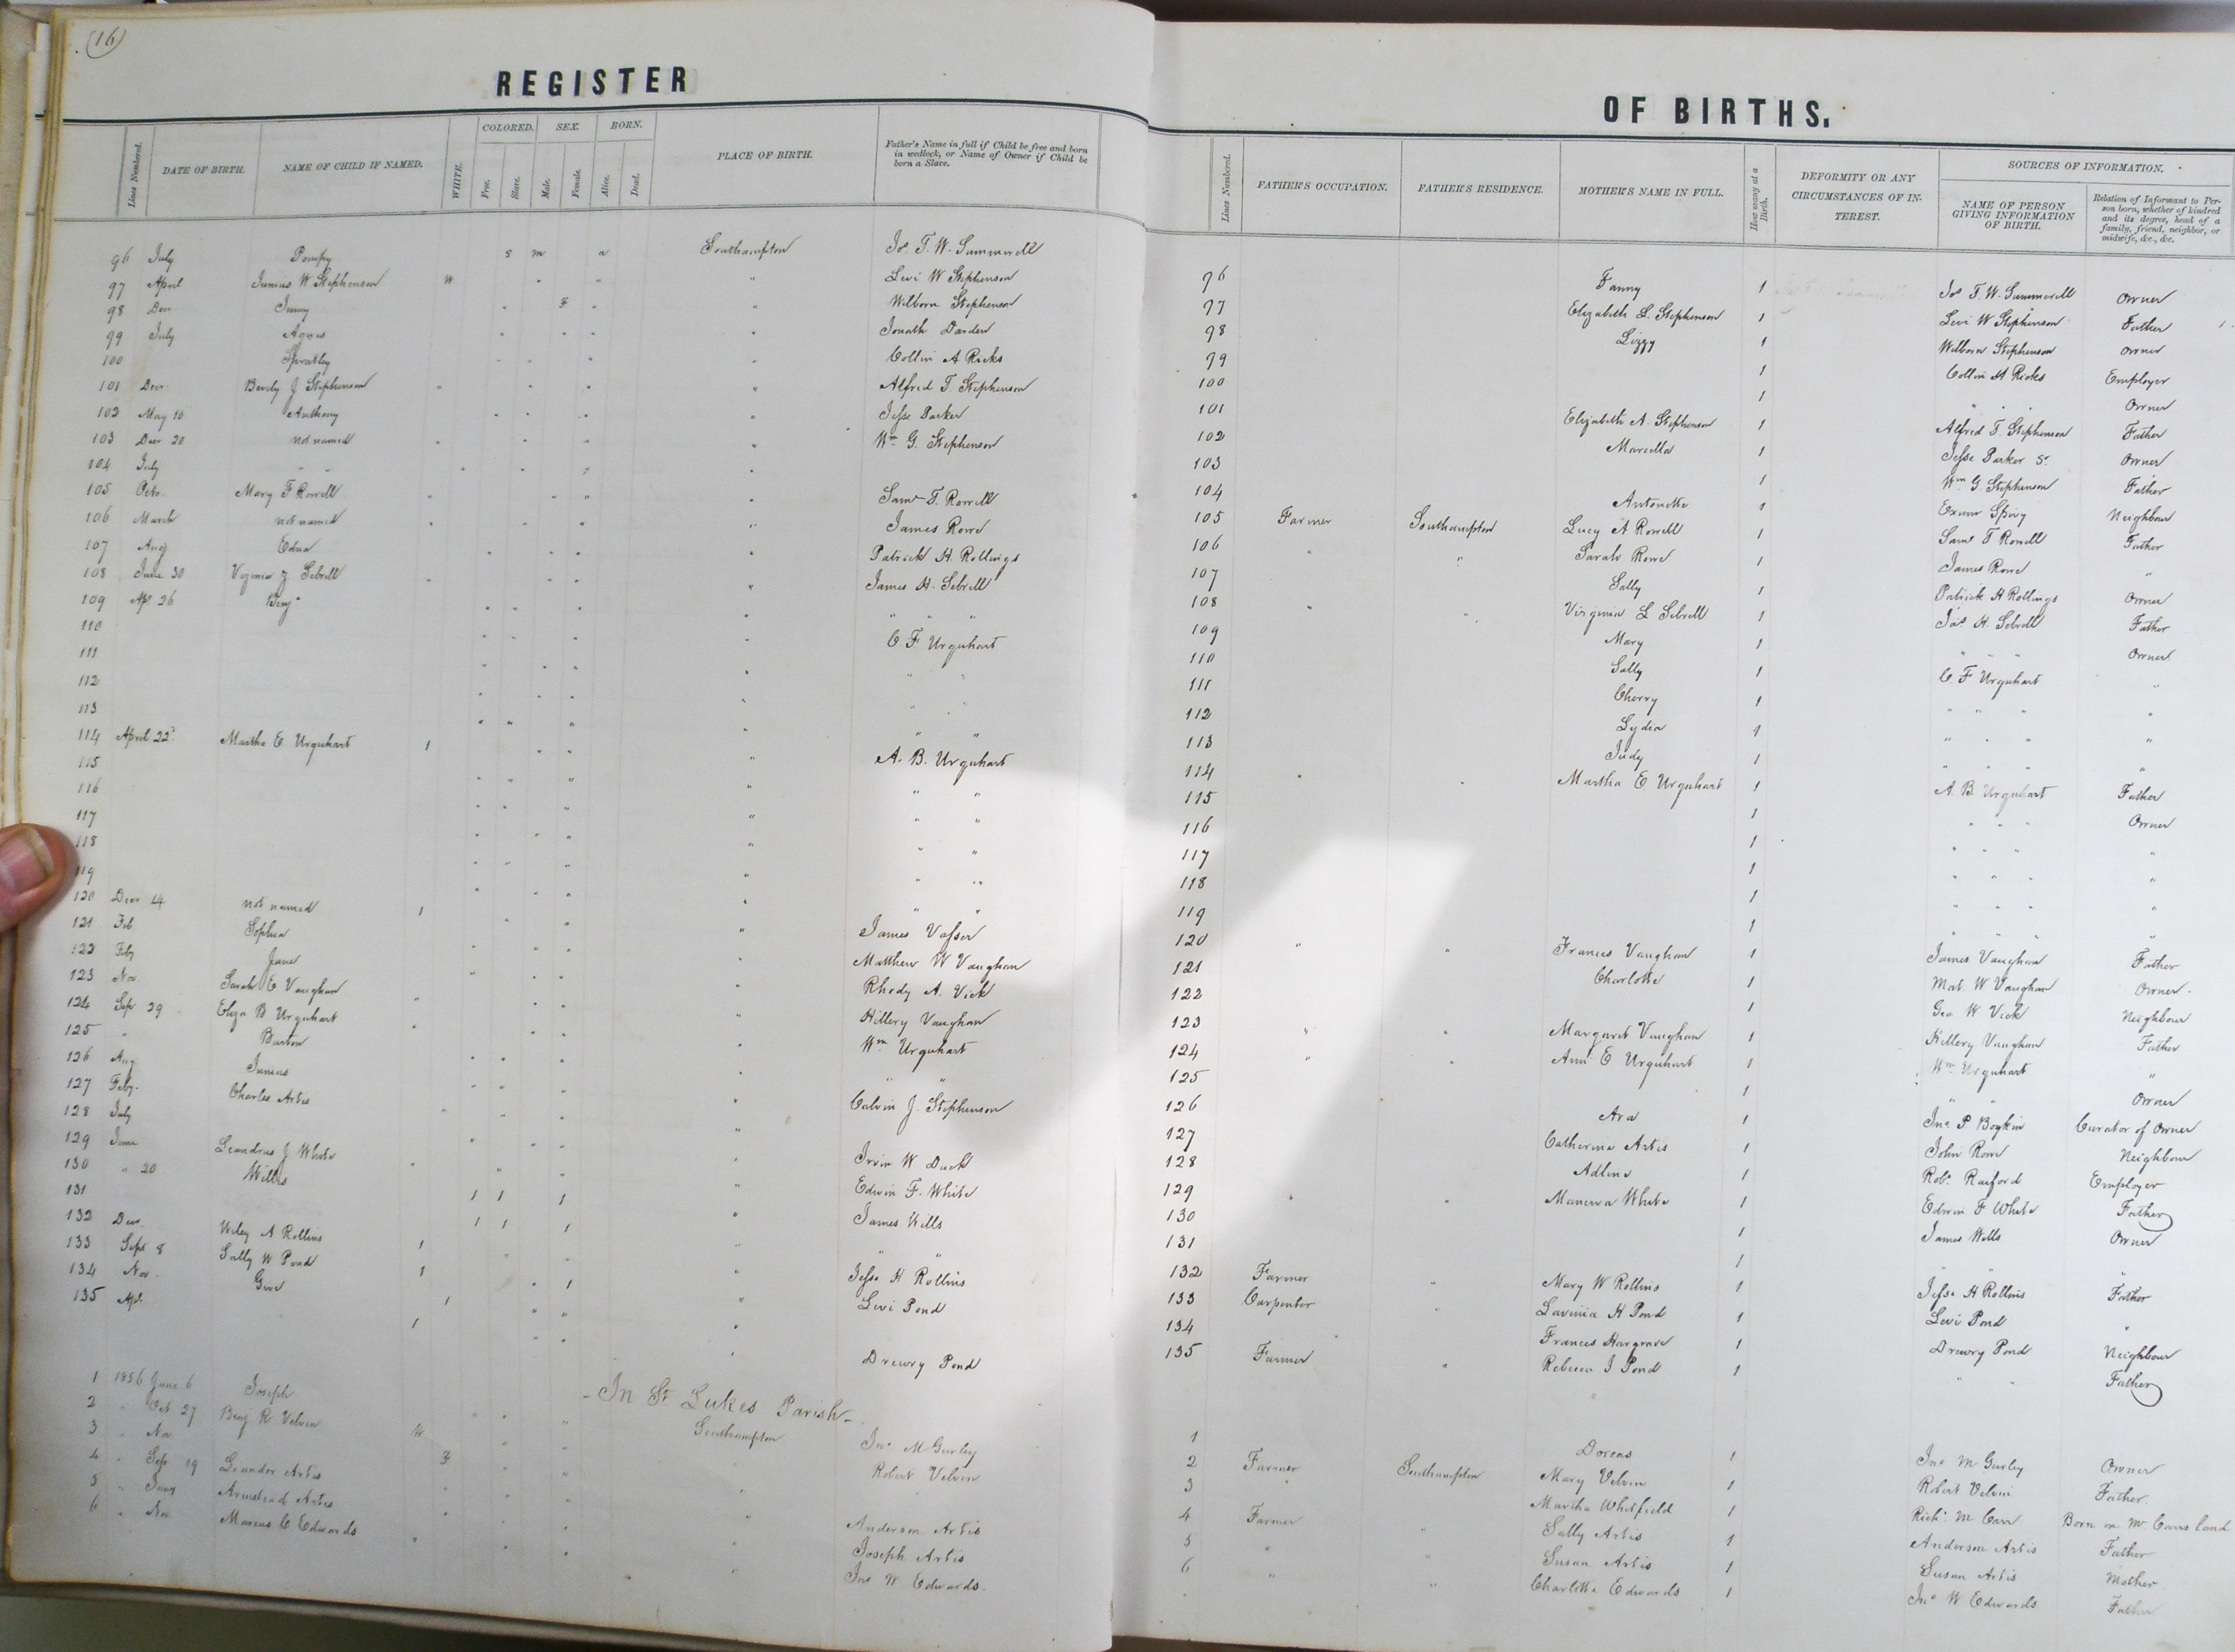 (16)
REGISTER
Lines Numbered.
DATE OF BIRTH.
NAME OF CHILD IF NAMED.
WHITE.
COLORED.
Free.
Slave.
SEX.
Male.
Female.
BORN.
Alive.
Dead.
PLACE OF BIRTH.
Father's Name in full if Child be free and born
in wedlock, or Name of Owner if Child be
born a Slave.
96 July Pompy s m a Southampton Jos T. W. Summerell
97 April Junius W Stephenson W " " " Levi W Stephenson
98 Decr " F " " Wilborn Stephenson
99 July Agnes " " " " Jonath Darden
100 Spratley " " " " Collin A Ricks
101 Decr Stephenson " " " " Alfred T. Stephenson
102 May 10 Anthony " " " " Jesse Parker
103 Decr 20 not named " " " " Wm G. Stephenson
104 July " " " " " "
105 Octr Mary F Rowell " " " " Saml T. Rowell
106 March not named " " " " James Rowe
107 Aug Edna " " " " Patrick H Rollings
108 June 30 Sebrell " " " " James H. Sebrell
109 Apl 26 Benj " " " " " " "
110 " " " " C. F. Urquhart
111 " " " " " "
112 " " " " " "
113 " " " " " "
114 April 22d Martha E. Urquhart 1 " " " A. B. Urquhart
115 " " " " " "
116 " " " " " "
117 " " " " " "
118 " " " " " "
119 " " " " " "
120 Decr 14 not named 1 " " " James Vasser
121 Feb. Sophia " " " " Matthew W Vaughan
122 Feby Jane " " " " Rhody A. Vick
123 Nov Sarah E Vaughan " " " " Hillery Vaughan
124 Sep 29 Eliza B Urquhart " " " " Wm Urquhart
125 " Burton " " " " " "
126 Aug Junius " " " " Calvin J. Stephenson
127 Feby. Charles Artis " " " "
128 July " " " " Irvin W Duck
129 June Leandrus J White " " " " Edwin F. White
130 " 20 Willis 1 1 1 " James Wills
131 1 1 1 " " "
132 Decr. Wiley A Rollins 1 " " Jesse H Rollins
133 Sept 8 Sally W Pond 1 " 1 " Levi Pond
134 Nov. 1 " " "
135 Apl. 1 " " " Drewry Pond
- In St. Lukes Parish -
1 1856 June 6 Joseph " " " Southampton Jno M Gurley
2 " Oct 27 Benj R Velvin W " " " Robert Velvin
3 " Nov F " " "
4 " Sep 19 Leander Artis " " " " Anderson Artis
5 " Armstead Artis " " " " Joseph Artis
6 " Nov Marcus C Edwards " " " " Jno W Edwards.
OF BIRTHS.
Lines Numbered.
FATHER'S OCCUPATION.
FATHER'S RESIDENCE.
MOTHER'S NAME IN FULL.
How many at a Birth.
DEFORMITY OR ANY
CIRCUMSTANCES OF IN-
TEREST.
SOURCES OF INFORMATION.
NAME OF PERSON
GIVING INFORMATION
OF BIRTH.
Relation of Informant to Per-
son born, whether of kindred
and its degree, head of a
family, friend, neighbor, or
midwife, &c., &c.
96 Fanny 1 Jos T. W. Summerell Owner
97 Elizabeth L. Stephenson 1 Levi W Stephenson Father
98 Lizzy 1 Wilborn Stephenson Owner
99 1 Collin A Ricks Employer
100 1 " " " Owner
101 Elizabeth A. Stephenson 1 Alfred T. Stephenson Father
102 Marcella 1 Jesse Parker Sr Owner
103 1 Wm G. Stephenson Father
104 Antonette 1 Exum Spivy Neighbour
105 Farmer Southampton Lucy A Rowell 1 Saml T Rowell Father
106 " " Sarah Rowe 1 James Rowe "
107 Sally 1 Patrick H Rollings Owner
108 " " Virginia L Sebrell 1 Jas. H. Sebrell Father
109 Mary 1 " " " Owner
110 Sally 1 C F Urquhart "
111 Cherry 1 " " " "
112 Lydia 1 " " " "
113 Judy 1 " " " "
114 " " Martha E. Urquhart 1 A. B. Urquhart Father
115 1 " " " Owner
116 1 " " " "
117 1 " " " "
118 1 " " " "
119 1 " " " "
120 " " Frances Vaughan 1 James Vaughan Father
121 Charlotte 1 Mat. W Vaughan Owner.
122 1 Geo W Vick Neighbour
123 " " Margaret Vaughan 1 Hillery Vaughan Father
124 " " Ann E Urquhart 1 Wm Urquhart "
125 1 " " Owner
126 Ava 1 Jno P Boykin Curator of Owner
127 Catherine Artis 1 John Rowe Neighbour
128 Adline 1 Robt Raiford Employer
129 " " Manerva White 1 Edwin F White Father
130 1 James Wills Owner
131 1 " " "
132 Farmer " Mary W Rollins 1 Jesse H Rollins Father
133 Carpenter " Lavinia H Pond 1 Levi Pond "
134 Frances Hargrave 1 Drewry Pond Neighbour
135 Farmer " Rebecca J Pond 1 " " Father
1 Dorcas 1 Jno M Gurley Owner
2 Farmer Southampton Mary Velvin 1 Robert Velvin Father.
3 " Martha Whitfield 1 Richd M Carr Born on Mr Carrs land
4 Farmer " Sally Artis 1 Anderson Artis Father
5 " " Susan Artis 1 Susan Artis Mother
6 " " Charlotte Edwards 1 Jno W Edwards Father